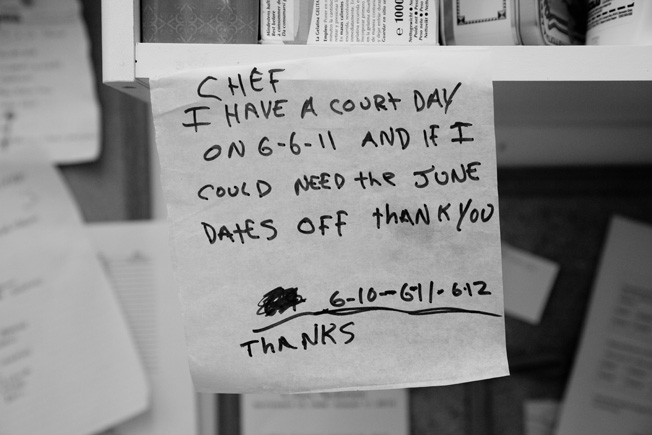 CHEF
I HAVE A COURT DAY
ON 6-6-11 AND IF I
COULD NEED the JUNE
DATES OFF thANK YOU
6-10-6-11-6-12
THANKS
e 1000